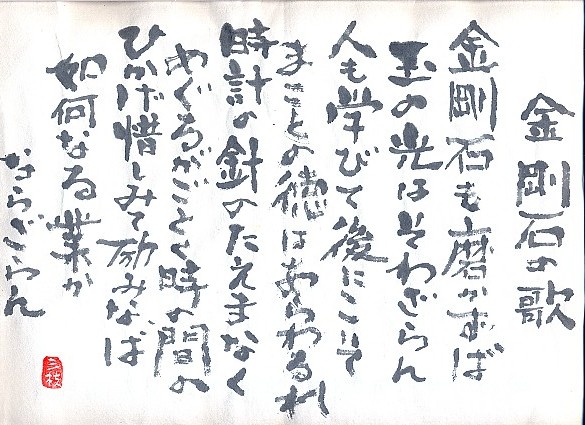 金剛石の歌
金剛石も磨かずば
玉の光はそわざらん
人も学びて後にこそ
まことの徳はあらわるれ
時計の針のたえまなく
めぐるがごとく時の間の
ひかげ惜しみて励みなば
如何なる業か
ならざらん